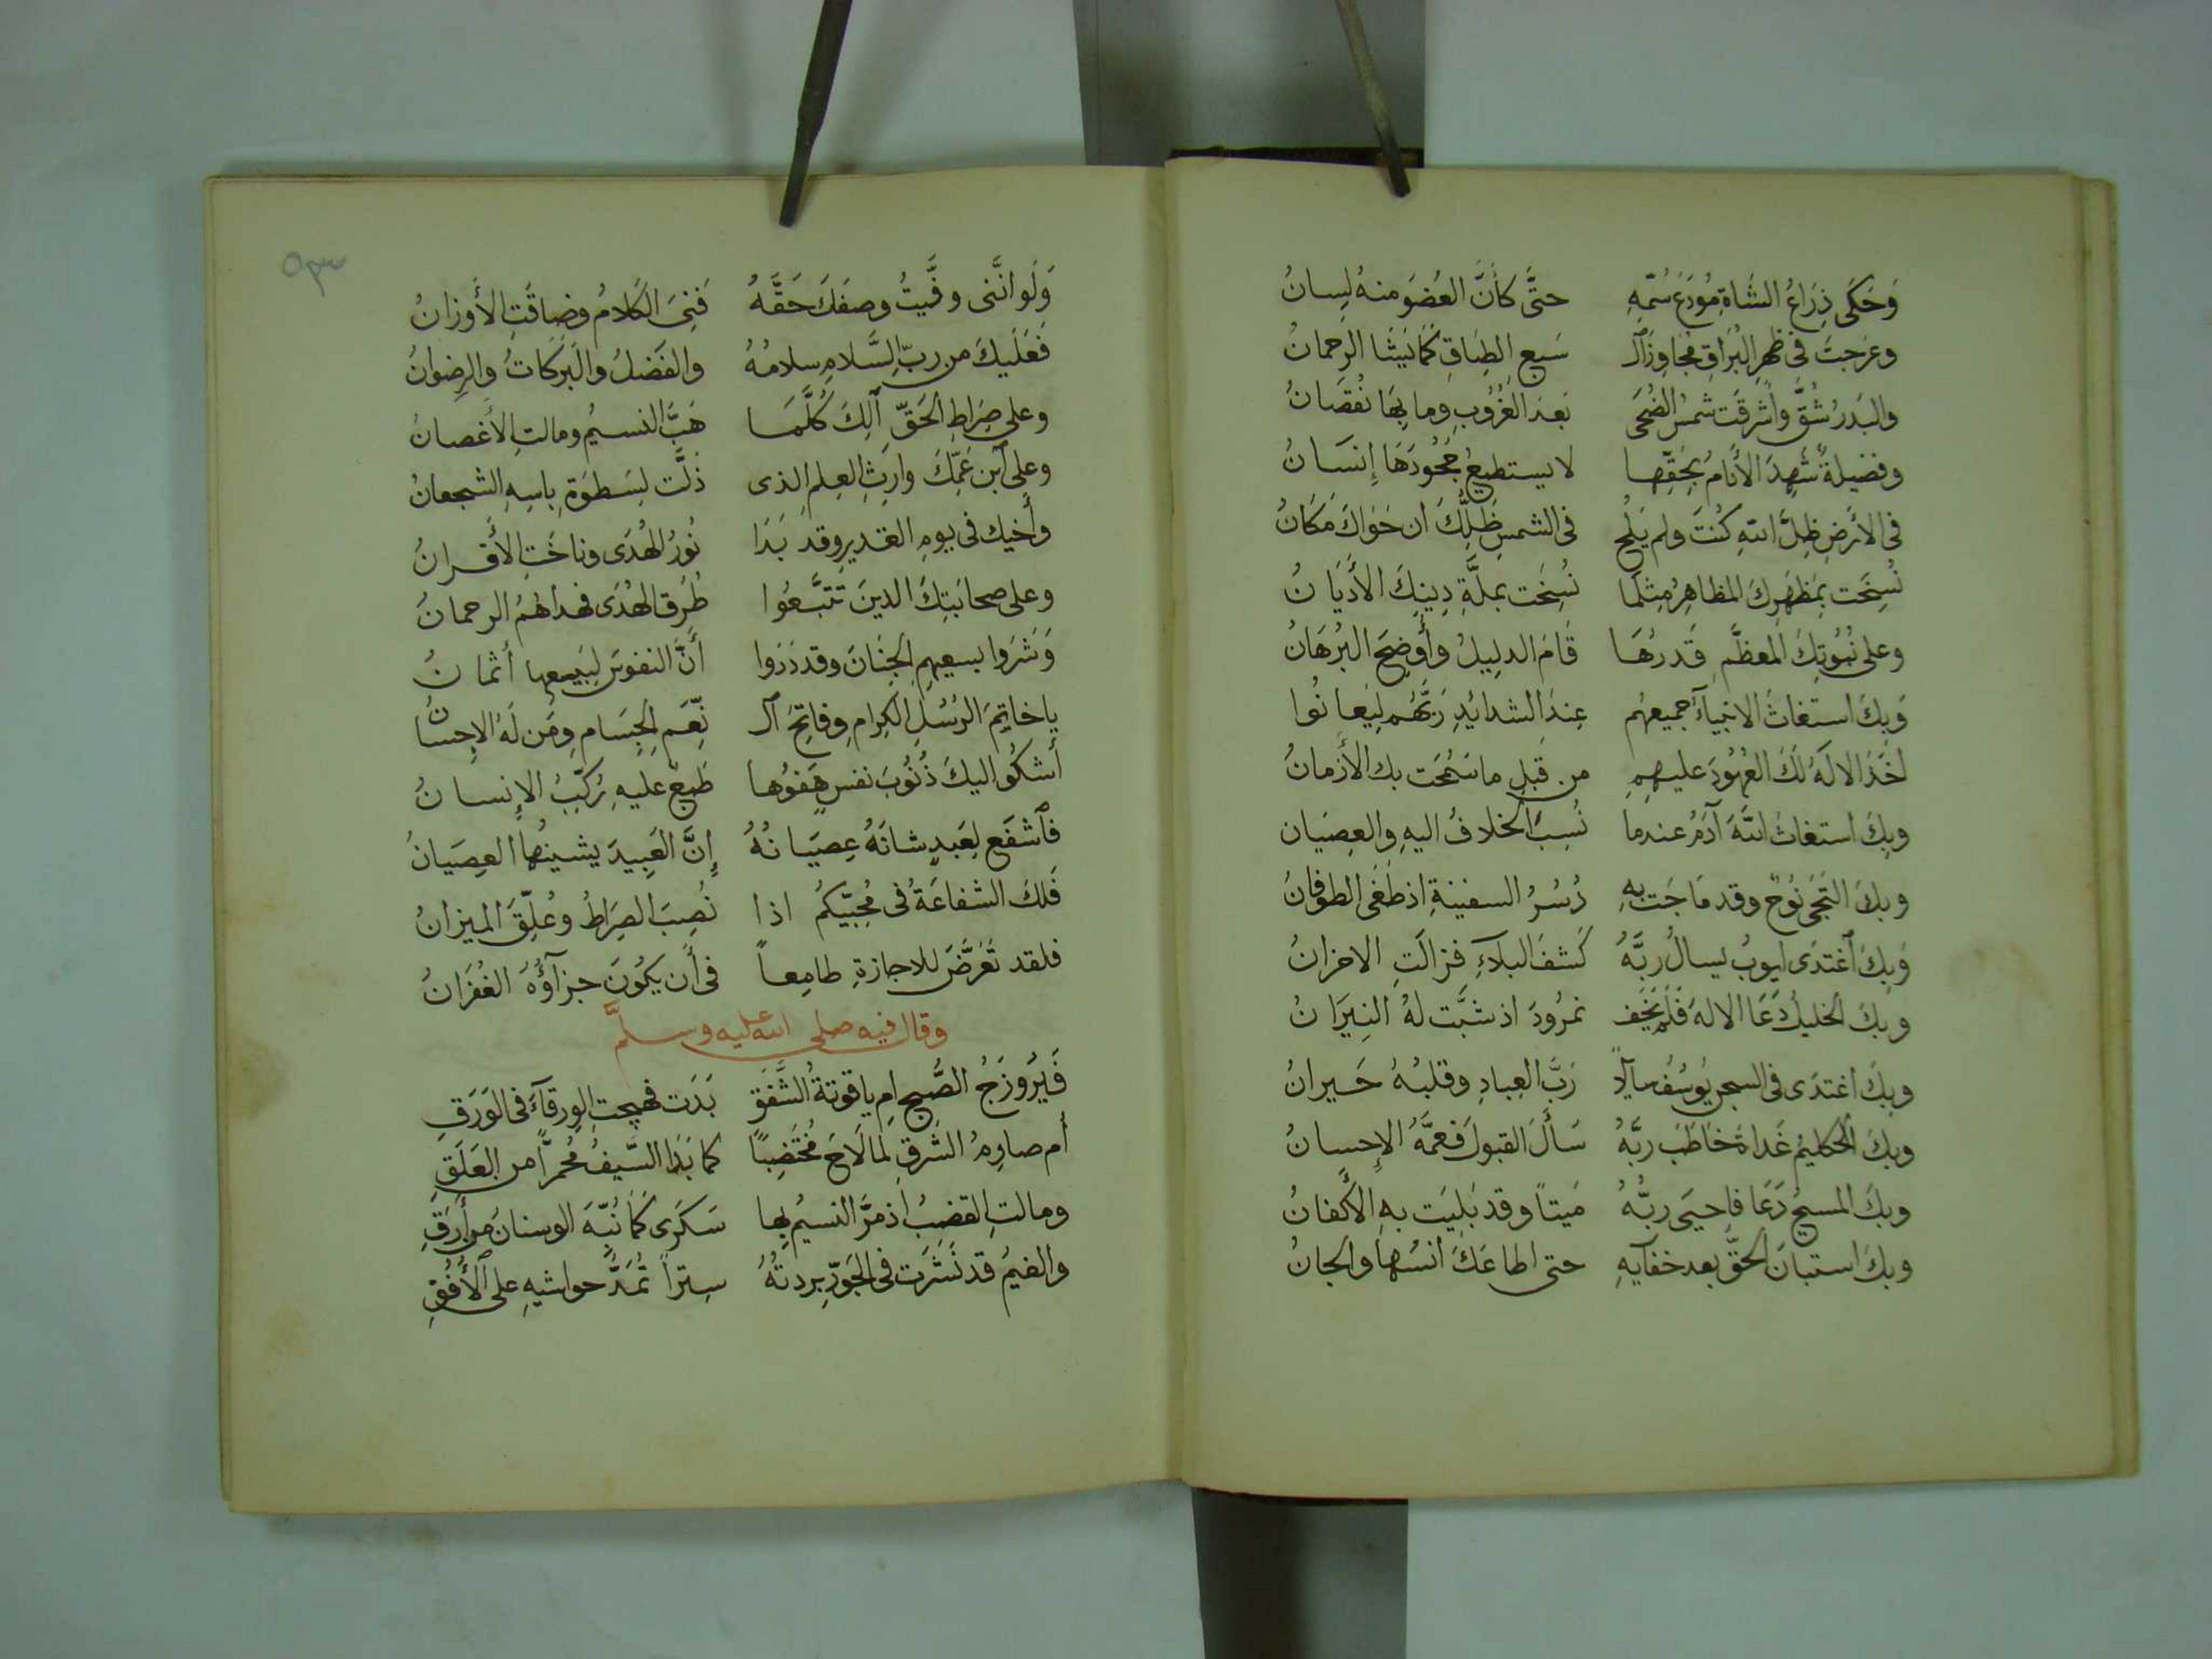 وَحَكَى ذِرَاعُ الشَّاةِ مُودَعَ سُمِّهِ حتَّى كأَنَّ العُضوَ منهُ لِسانُ
وعَرَجتَ فى ظهرِ البُرَاقِ مُجاوِزَ ٱلـ سَبعِ الطِبَاقِ كَمَا يَشَا الرَحمانُ
والبَدرُ شُقَّ وأشرقَت شمسُ الضُحَى بَعدَ الغُرُوبِ وما بِهَا نُقصَانُ
وفضيلةٌ شَهِدَ الأَنامُ بِحَقِّها لا يستطيعُ جُحُودَهَا إِنسَانُ
فى الارَضِ ظِلَّ اللهِ كُنتَ ولم يَلُح فى الشمسِ ظِلُّكَ ان حَوَاكَ مَكَانُ
نُسِخَت بِمَظهَرِكَ المظاهِرُ مِثلَمَا نُسِخَت بملَّةِ دِينِكَ الأَديَانُ
وعلى نُبُوَّتِكَ المعظَّمِ قَدرُهَا قَامَ الدليلُ وأَوضِحَ البُرهَانُ
وَبِكَ استغاثَ الانبيآءُ جميعهُم عِندَ الشدائدِ رَبَّهُم لِيُعانُوا
اخَذَ الالَهُ لَكَ العُهُودَ عليهمِ من قَبلِ ما سَمُحَت بك الأزمانُ
وبِكَ استغاثَ اللهَ آدَمُ عندما نُسِبَ الخلافُ اليهِ والعِصيَان
وبكَ التَجَى نُوحٌ وقد مَاجَت بهِ دُسُرُ السفينةِ اذ طَغَى الطوفانُ
وَبِكَ ٱغتدَى ايوبُ يسالُ ربَّهُ كَشفَ البلآءِ فزالَتِ الاحزانُ
وبكَ الخليلُ دَعَا الالهَ فَلَم يَخَف نمرُودَ اذ شبَّت لهُ النِيرَانُ
وبكَ اغتدَى فى السجنِ يوُسُفُ سآلاً رَبَّ العِبادِ وقلبُهُ حَيرانُ
وبكَ الكليمُ غَداةَ خَاطَبَ ربَّهُ سَأَلَ القبولَ فعمَّهُ الإِحسانُ
وبكَ المسيحُ دَعَا فاحيَى ربُّهُ مَيتاً وقد بَلِيَت بهِ الأَكفانُ
وبكَ استبانَ الحقُّ بعد خفآيهِ حتى اطاعَكَ انسُها والجانُ
٥٣
وَلَو انَّنى وفَّيتُ وصفَكَ حَقَّهُ فَنِىَ الكَلامُ وضاقَتِ الأَوزانُ
فَعَلَيكَ من ربِّ السَّلامِ سلامُهُ والفَضلُ والبَرَكَاتُ والرِضوانُ
وعلى صِرَاطِ الحَقِّ آلِكَ كُلَّمَا هَبَّ النسيمُ ومالتِ الأغصانُ
وعلى ٱبنِ عَمِّكَ وارِثِ العِلمِ الذى ذَلَّت لِسَطوَةِ باسِهِ الشجعانُ
وأَخيك فى يومِ الغديرِ وقد بَدَا نُورُ الهُدَى وتاخَّتِ الأَقرانُ
وعلى صحابَتِكَ الذينَ تَتبَّعُوا طُرُقَ الهُدَى فهداهُمُ الرحمانُ
وَشَرَوا بسعيهمِ الجِنَانَ وقد دَرَوا أَنَّ النفوسَ لِبَيعها أَثمانُ
يا خاتِمَ الرُسُلِ الكِرامِ وفاتِحَ ٱلـ نِّعَمِ الجِسَامِ ومَن لَهُ الإِحسانُ
أَشكُو اليكَ ذُنُوبَ نفسٍ هَفوُها طَبعٌ عليهِ رُكِّبَ الإِنسانُ
فٱشفَع لِعَبدٍ شانَهُ عِصيَانُهُ إِنَّ العَبِيدَ يشينُها العِصَيانُ
فَلكَ الشفاعَةُ فى مُحِبِّيكُم اذا نُصِبَ الصِرَاطُ وعُلِّقَ الميزانُ
فلقد تَعرَّضَ للاجازةِ طامِعاً فى أَن يكُونَ جزآؤُهُ الغُفرَانُ
وقال فيه صلى الله عليه وسلمَّ
فَيرُوزَجُ الصُبحِ امِ ياقوتةُ الشَّفَقِ بَدَت فهيجتِ الورقآءَ فى الوَرَقِ
أَم صارِمُ الشَرقِ لما لَاحَ مُختَضِباً كما بَدَا السَّيفُ مُحمرّاً من العَلَقِ
ومالتِ القضبُ اذ مرَّ النسيمُ بِها سَكرَى كَمَا نُبِّهَ الوسنانُ من أَرَقِ
والغيمُ قد نَشَرَت فى الجَوِّ بردتُهُ سِتراً تُمَدُّ حواشيهِ على ٱلأُفُقِ